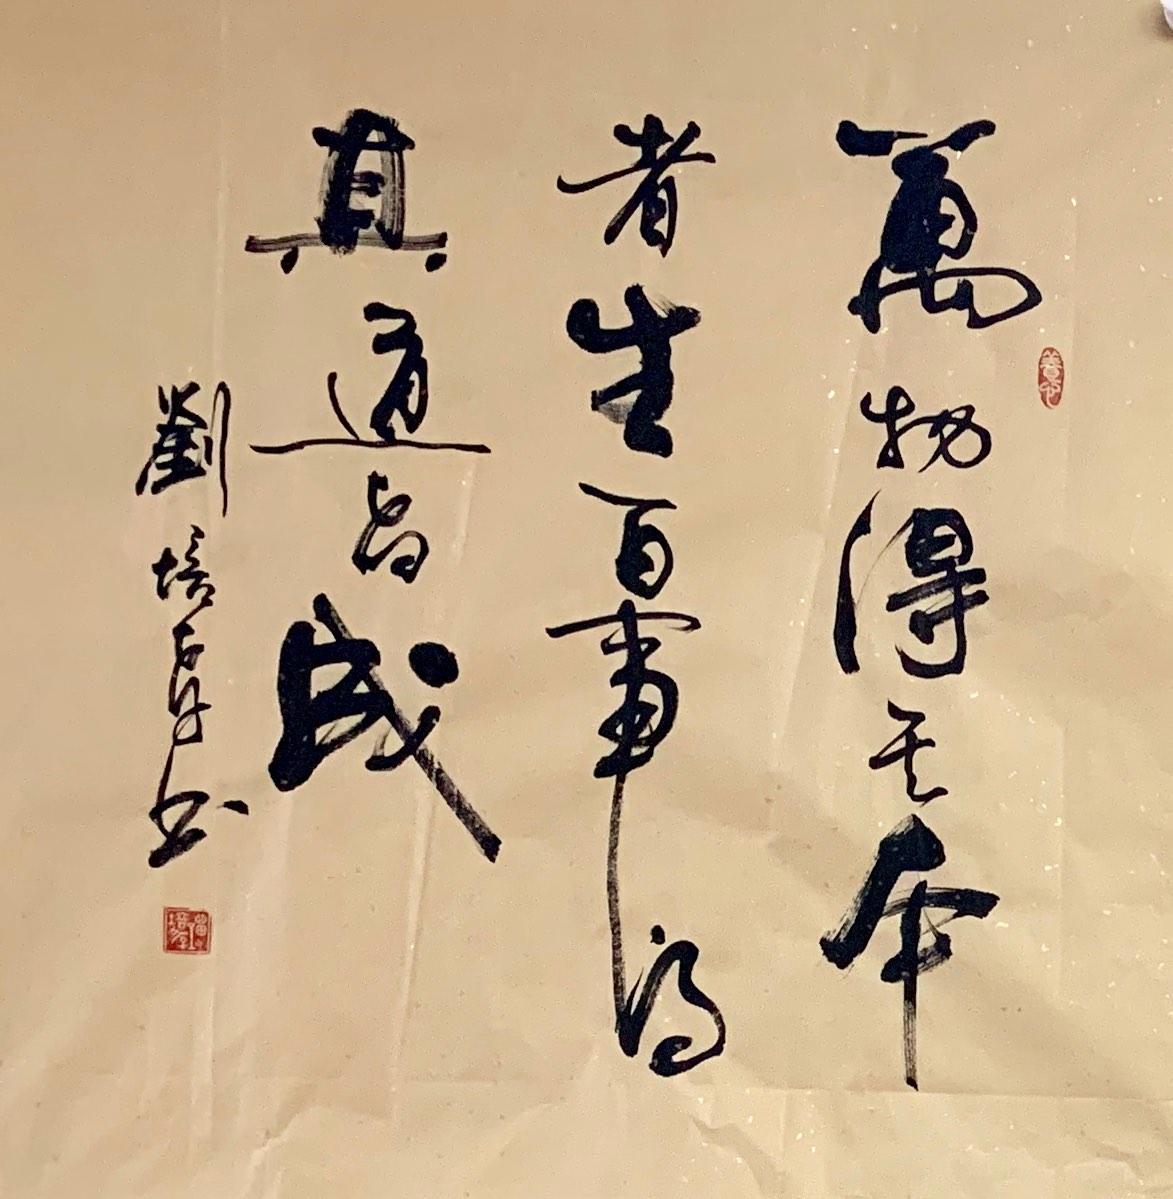 萬物得其本
者生百事得
其道者成
劉培书